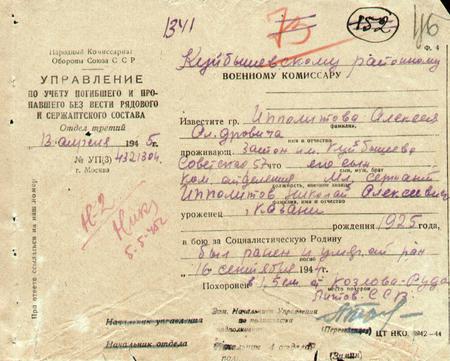 1341
75
152
Ф. 4
Народный Комиссариат
Обороны Союза ССР
УПРАВЛЕНИЕ
ПО УЧЕТУ ПОГИБШЕГО И ПРО-
ПАВШЕГО БЕЗ ВЕСТИ РЯДОВОГО
И СЕРЖАНТСКОГО СОСТАВА
Отдел третий
13 апреля 1945г.
№ УП(3) 4321304
г. Москва
При ответе ссылаться на наш номер
5-5-45г
Куйбышевскому районному
ВОЕННОМУ КОМИССАРУ
Известите гр. Ипполитова Алексея
фамилия,
Ал.дровича
имя и отчество
проживающ. Затон им. Куйбышева
Советская 57 что его сын
сын, муж, брат
ком. отделения Мл. сержант
должность, воинское звание
Ипполитов Николай Алексеевич
фамилия, имя и отчество
уроженец г. Казани
рождения 1925 года,
в бою за Социалистическую Родину
был ранен и умер от ран
16 сентября 1944г.
Похоронен в 1,5 км Козлова-Руда
место похорон
Литов. ССР
Начальник управления
Зам. Начальника Управления
Начальник отдела
Начальник 4 отдела
ЦТ НКО. 1942—44